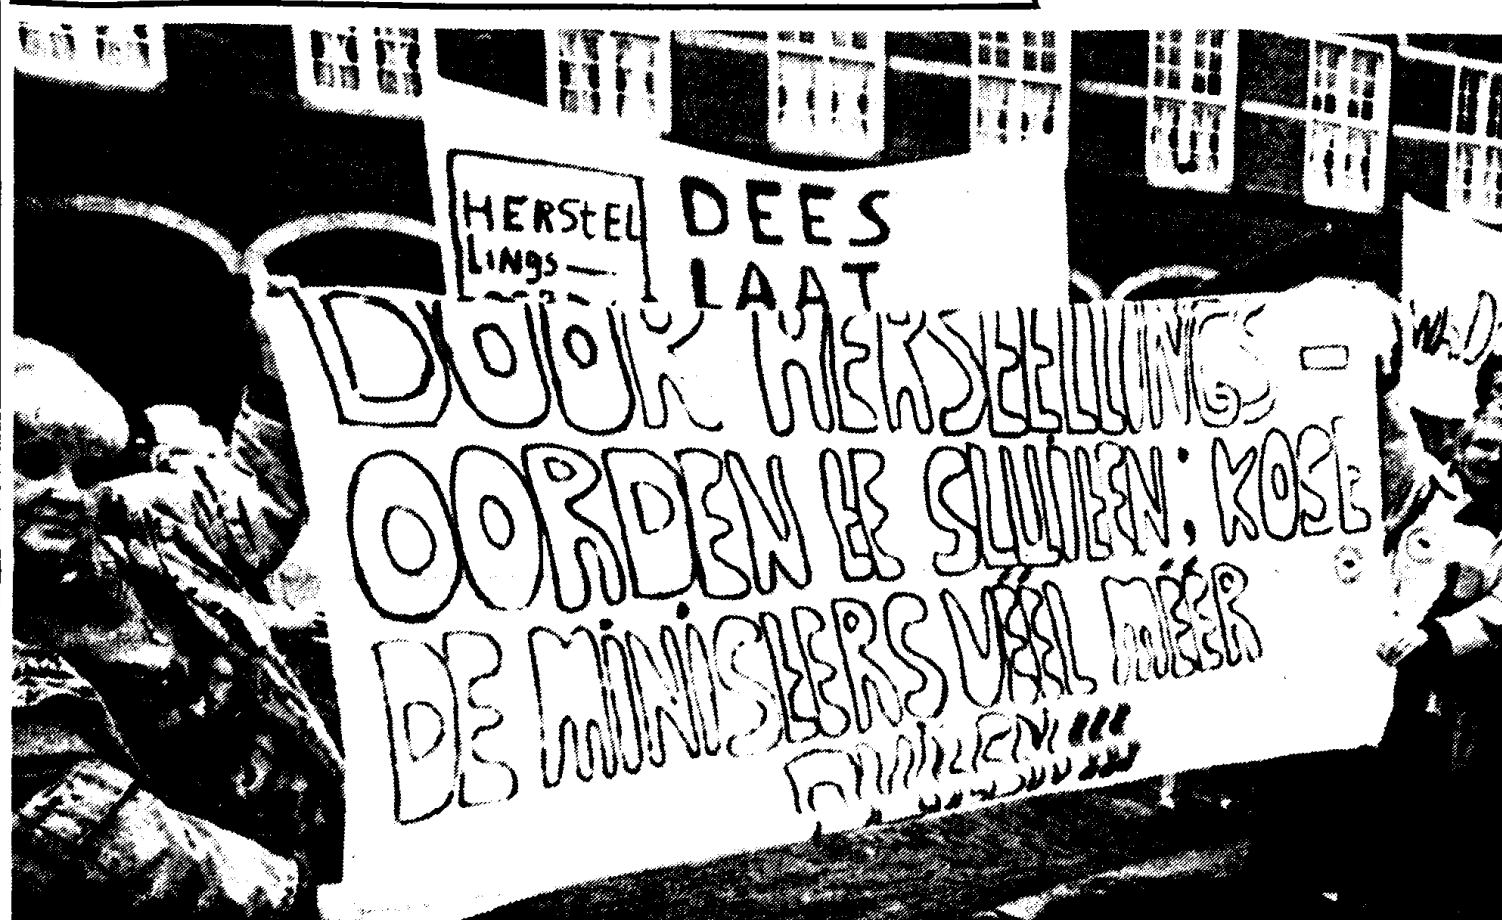 HERStEL
LiNgs—
DEES
LAAT
DOOR HERStELLINGS-
OORDEN tE SLUItEN; KOSt
DE MiNiStERS VÉÉL MÉÉR
DUItEN!!!